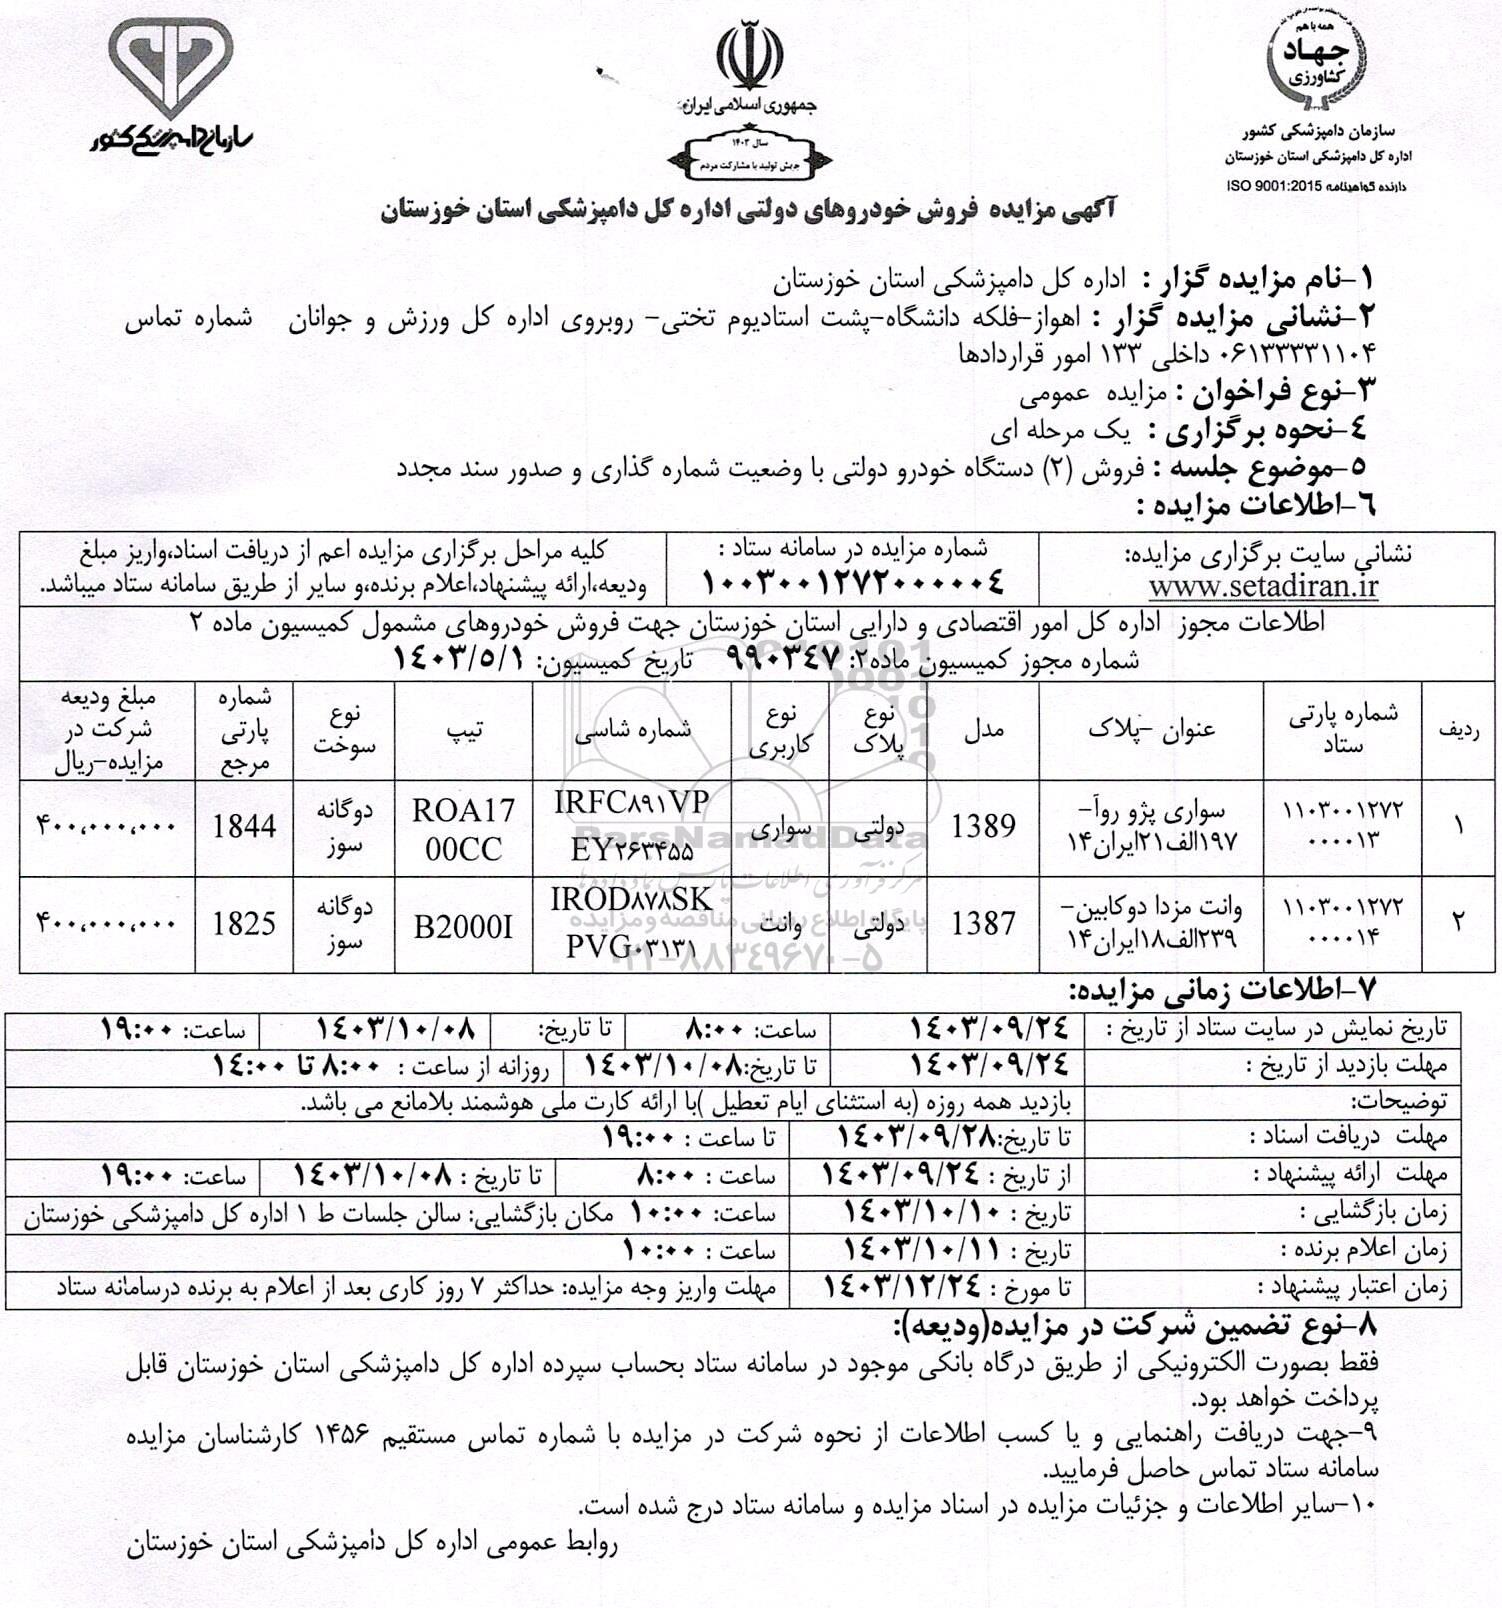 همه با هم
جهاد
کشاورزی
سازمان دامپزشکی کشور
اداره کل دامپزشکی استان خوزستان
دارنده گواهینامه ISO 9001:2015
جمهوری اسلامی ایران
سال ۱۴۰۳
جهش تولید با مشارکت مردم
سازمان دامپزشکی کشور
آگهی مزایده فروش خودروهای دولتی اداره کل دامپزشکی استان خوزستان
۱-نام مزایده گزار : اداره کل دامپزشکی استان خوزستان
۲-نشانی مزایده گزار : اهواز-فلکه دانشگاه-پشت استادیوم تختی- روبروی اداره کل ورزش و جوانان شماره تماس
۰۶۱۳۳۳۳۱۱۰۴ داخلی ۱۳۳ امور قراردادها
۳-نوع فراخوان : مزایده عمومی
۴-نحوه برگزاری : یک مرحله ای
۵-موضوع جلسه : فروش (۲) دستگاه خودرو دولتی با وضعیت شماره گذاری و صدور سند مجدد
۶-اطلاعات مزایده :
نشانی سایت برگزاری مزایده:
www.setadiran.ir
شماره مزایده در سامانه ستاد :
۱۰۰۳۰۰۱۲۷۲۰۰۰۰۰۴
کلیه مراحل برگزاری مزایده اعم از دریافت اسناد،واریز مبلغ
ودیعه،ارائه پیشنهاد،اعلام برنده،و سایر از طریق سامانه ستاد میباشد.
اطلاعات مجوز اداره کل امور اقتصادی و دارایی استان خوزستان جهت فروش خودروهای مشمول کمیسیون ماده ۲
شماره مجوز کمیسیون ماده۲: ۹۹۰۳۴۷ تاریخ کمیسیون: ۱۴۰۳/۵/۱
ردیف
شماره پارتی
ستاد
عنوان -پلاک
مدل
نوع
پلاک
نوع
کاربری
شماره شاسی
تیپ
نوع
سوخت
شماره
پارتی
مرجع
مبلغ ودیعه
شرکت در
مزایده-ریال
۱
۱۱۰۳۰۰۱۲۷۲
۰۰۰۰۱۳
سواری پژو روآ-
۱۹۷الف۲۱ایران۱۴
1389
دولتی
سواری
IRFC۸۹۱VP
EY۲۶۳۴۵۵
ROA17
00CC
دوگانه
سوز
1844
۴۰۰,۰۰۰,۰۰۰
۲
۱۱۰۳۰۰۱۲۷۲
۰۰۰۰۱۴
وانت مزدا دوکابین-
۲۳۹الف۱۸ایران۱۴
1387
دولتی
وانت
IROD۸۷۸SK
PVG۰۳۱۳۱
B2000I
دوگانه
سوز
1825
۴۰۰,۰۰۰,۰۰۰
ParsNamadData
پایگاه اطلاع رسانی مناقصه و مزایده
۰۲۱-۸۸۳۴۹۶۷۰-۵
۷-اطلاعات زمانی مزایده:
تاریخ نمایش در سایت ستاد از تاریخ : ۱۴۰۳/۰۹/۲۴ ساعت: ۸:۰۰ تا تاریخ: ۱۴۰۳/۱۰/۰۸ ساعت: ۱۹:۰۰
مهلت بازدید از تاریخ : ۱۴۰۳/۰۹/۲۴ تا تاریخ:۱۴۰۳/۱۰/۰۸ روزانه از ساعت : ۸:۰۰ تا ۱۴:۰۰
توضیحات: بازدید همه روزه (به استثنای ایام تعطیل )با ارائه کارت ملی هوشمند بلامانع می باشد.
مهلت دریافت اسناد : تا تاریخ:۱۴۰۳/۰۹/۲۸ تا ساعت : ۱۹:۰۰
مهلت ارائه پیشنهاد : از تاریخ : ۱۴۰۳/۰۹/۲۴ ساعت : ۸:۰۰ تا تاریخ : ۱۴۰۳/۱۰/۰۸ ساعت: ۱۹:۰۰
زمان بازگشایی : تاریخ : ۱۴۰۳/۱۰/۱۰ ساعت: ۱۰:۰۰ مکان بازگشایی: سالن جلسات ط ۱ اداره کل دامپزشکی خوزستان
زمان اعلام برنده : تاریخ : ۱۴۰۳/۱۰/۱۱ ساعت : ۱۰:۰۰
زمان اعتبار پیشنهاد : تا مورخ : ۱۴۰۳/۱۲/۲۴ مهلت واریز وجه مزایده: حداکثر ۷ روز کاری بعد از اعلام به برنده درسامانه ستاد
۸-نوع تضمین شرکت در مزایده(ودیعه):
فقط بصورت الکترونیکی از طریق درگاه بانکی موجود در سامانه ستاد بحساب سپرده اداره کل دامپزشکی استان خوزستان قابل
پرداخت خواهد بود.
۹-جهت دریافت راهنمایی و یا کسب اطلاعات از نحوه شرکت در مزایده با شماره تماس مستقیم ۱۴۵۶ کارشناسان مزایده
سامانه ستاد تماس حاصل فرمایید.
۱۰-سایر اطلاعات و جزئیات مزایده در اسناد مزایده و سامانه ستاد درج شده است.
روابط عمومی اداره کل دامپزشکی استان خوزستان